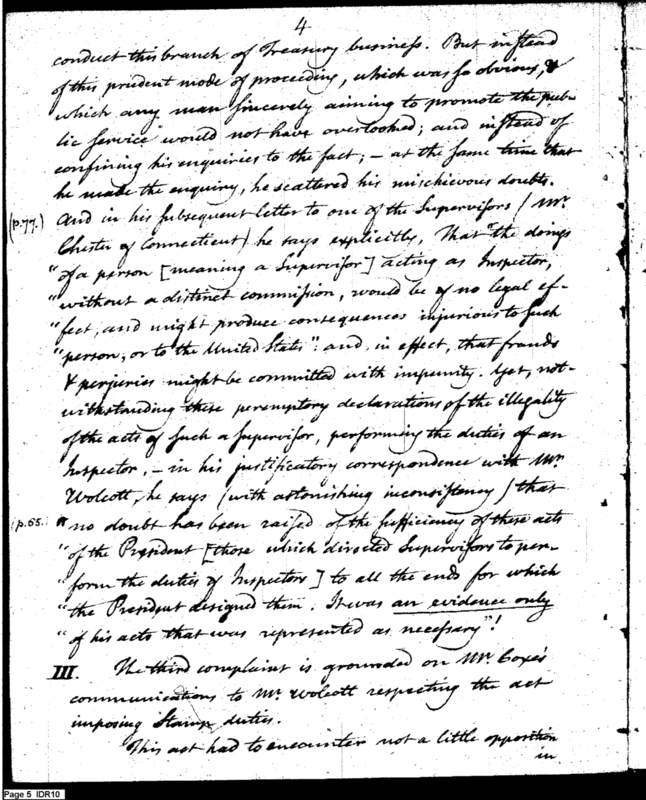 4
conduct this branch of Treasury business. But instead
of this prudent mode of proceeding, which was so obvious, &
which any man sincerely aiming to promote the pub-
lic service would not have overlooked; and instead of
confining his enquiries to the fact; — at the same time that
he made the enquiry, he scattered his mischievous doubts.
(p.77.) And in his subsequent letter to one of the Supervisors (Mr.
Chester of Connecticut) he says explicitly, That "the doings
"of a person [meaning a Supervisor] acting as Inspector,
"without a distinct commission, would be of no legal ef-
"fect, and might produce consequences injurious to such
"person, or to the United States": and, in effect, that frauds
& perjuries might be committed with impunity. Yet, not-
withstanding these peremptory declarations of the illegality
of the acts of such a Supervisor, performing the duties of an
Inspector, — in his justificatory correspondence with Mr.
Wolcott, he says (with astonishing inconsistency) that
(p.65.) "no doubt has been raised of the sufficiency of these acts
"of the President [those which directed Supervisors to per-
"form the duties of Inspectors] to all the ends for which
"the President designed them. It was an evidence only
"of his acts that was represented as necessary"!
III. The third complaint is grounded on Mr. Coxe's
communications to Mr. Wolcott respecting the act
imposing Stamp duties.
This act had to encounter not a little opposition
in
Page 5 IDR10